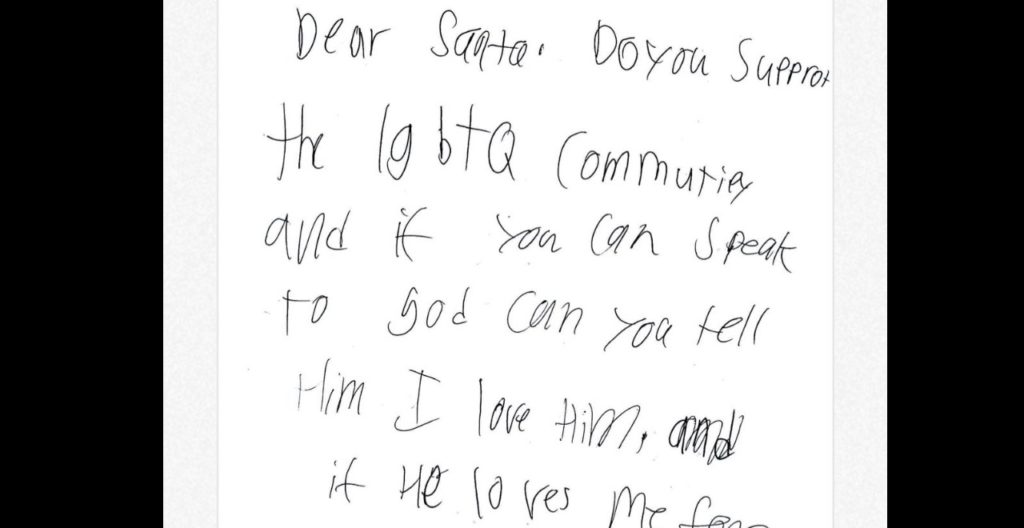 Dear Santa. Do you Supprot
the lgbtQ Commutiey
and if you can speak
to god can you tell
Him I love Him, and
if He loves Me